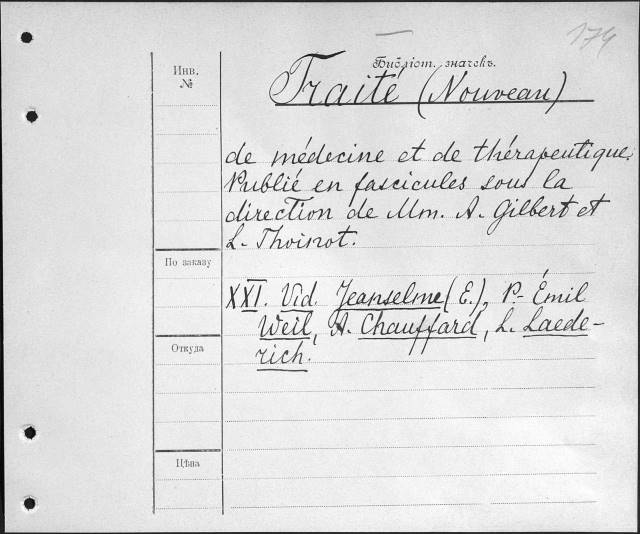 174
Инв.
№
Библіот. значекъ.
Traité (Nouveau)
de médecine et de thérapeutique.
Publié en fascicules sous la
direction de Mm. A. Gilbert et
L. Thoinot.
По заказу
XXI. Vid. Jeanselme (E.), P.-Émil
Weil, A. Chauffard, L. Laede-
rich.
Откуда
Цѣна